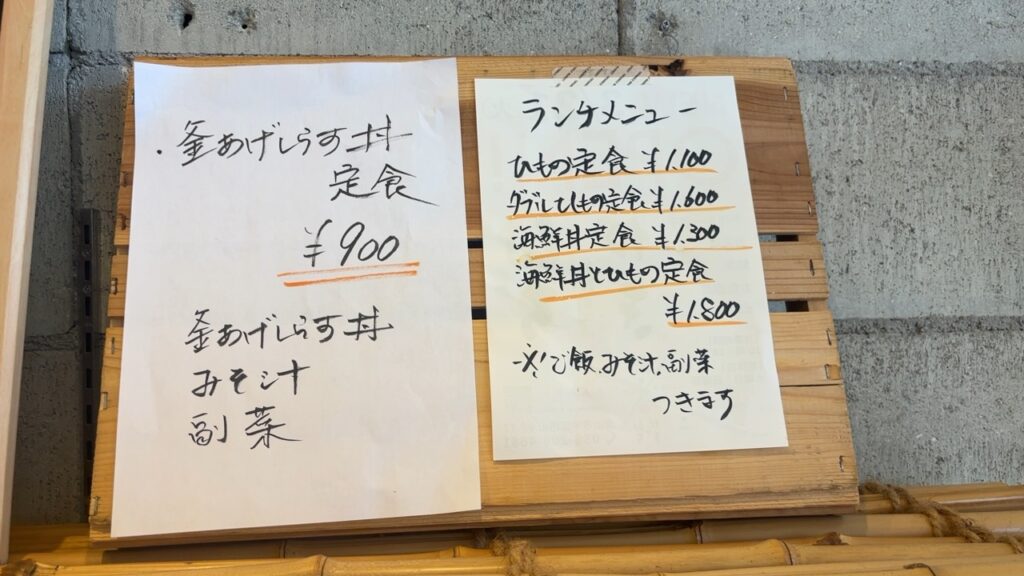 ・釜あげしらす丼
定食
¥900
釜あげしらす丼
みそ汁
副菜
ランチメニュー
ひもの定食 ¥1.100
ダブルひもの定食 ¥1.600
海鮮丼定食 ¥1.300
海鮮丼とひもの定食
¥1.800
ご飯、みそ汁、副菜
つきます